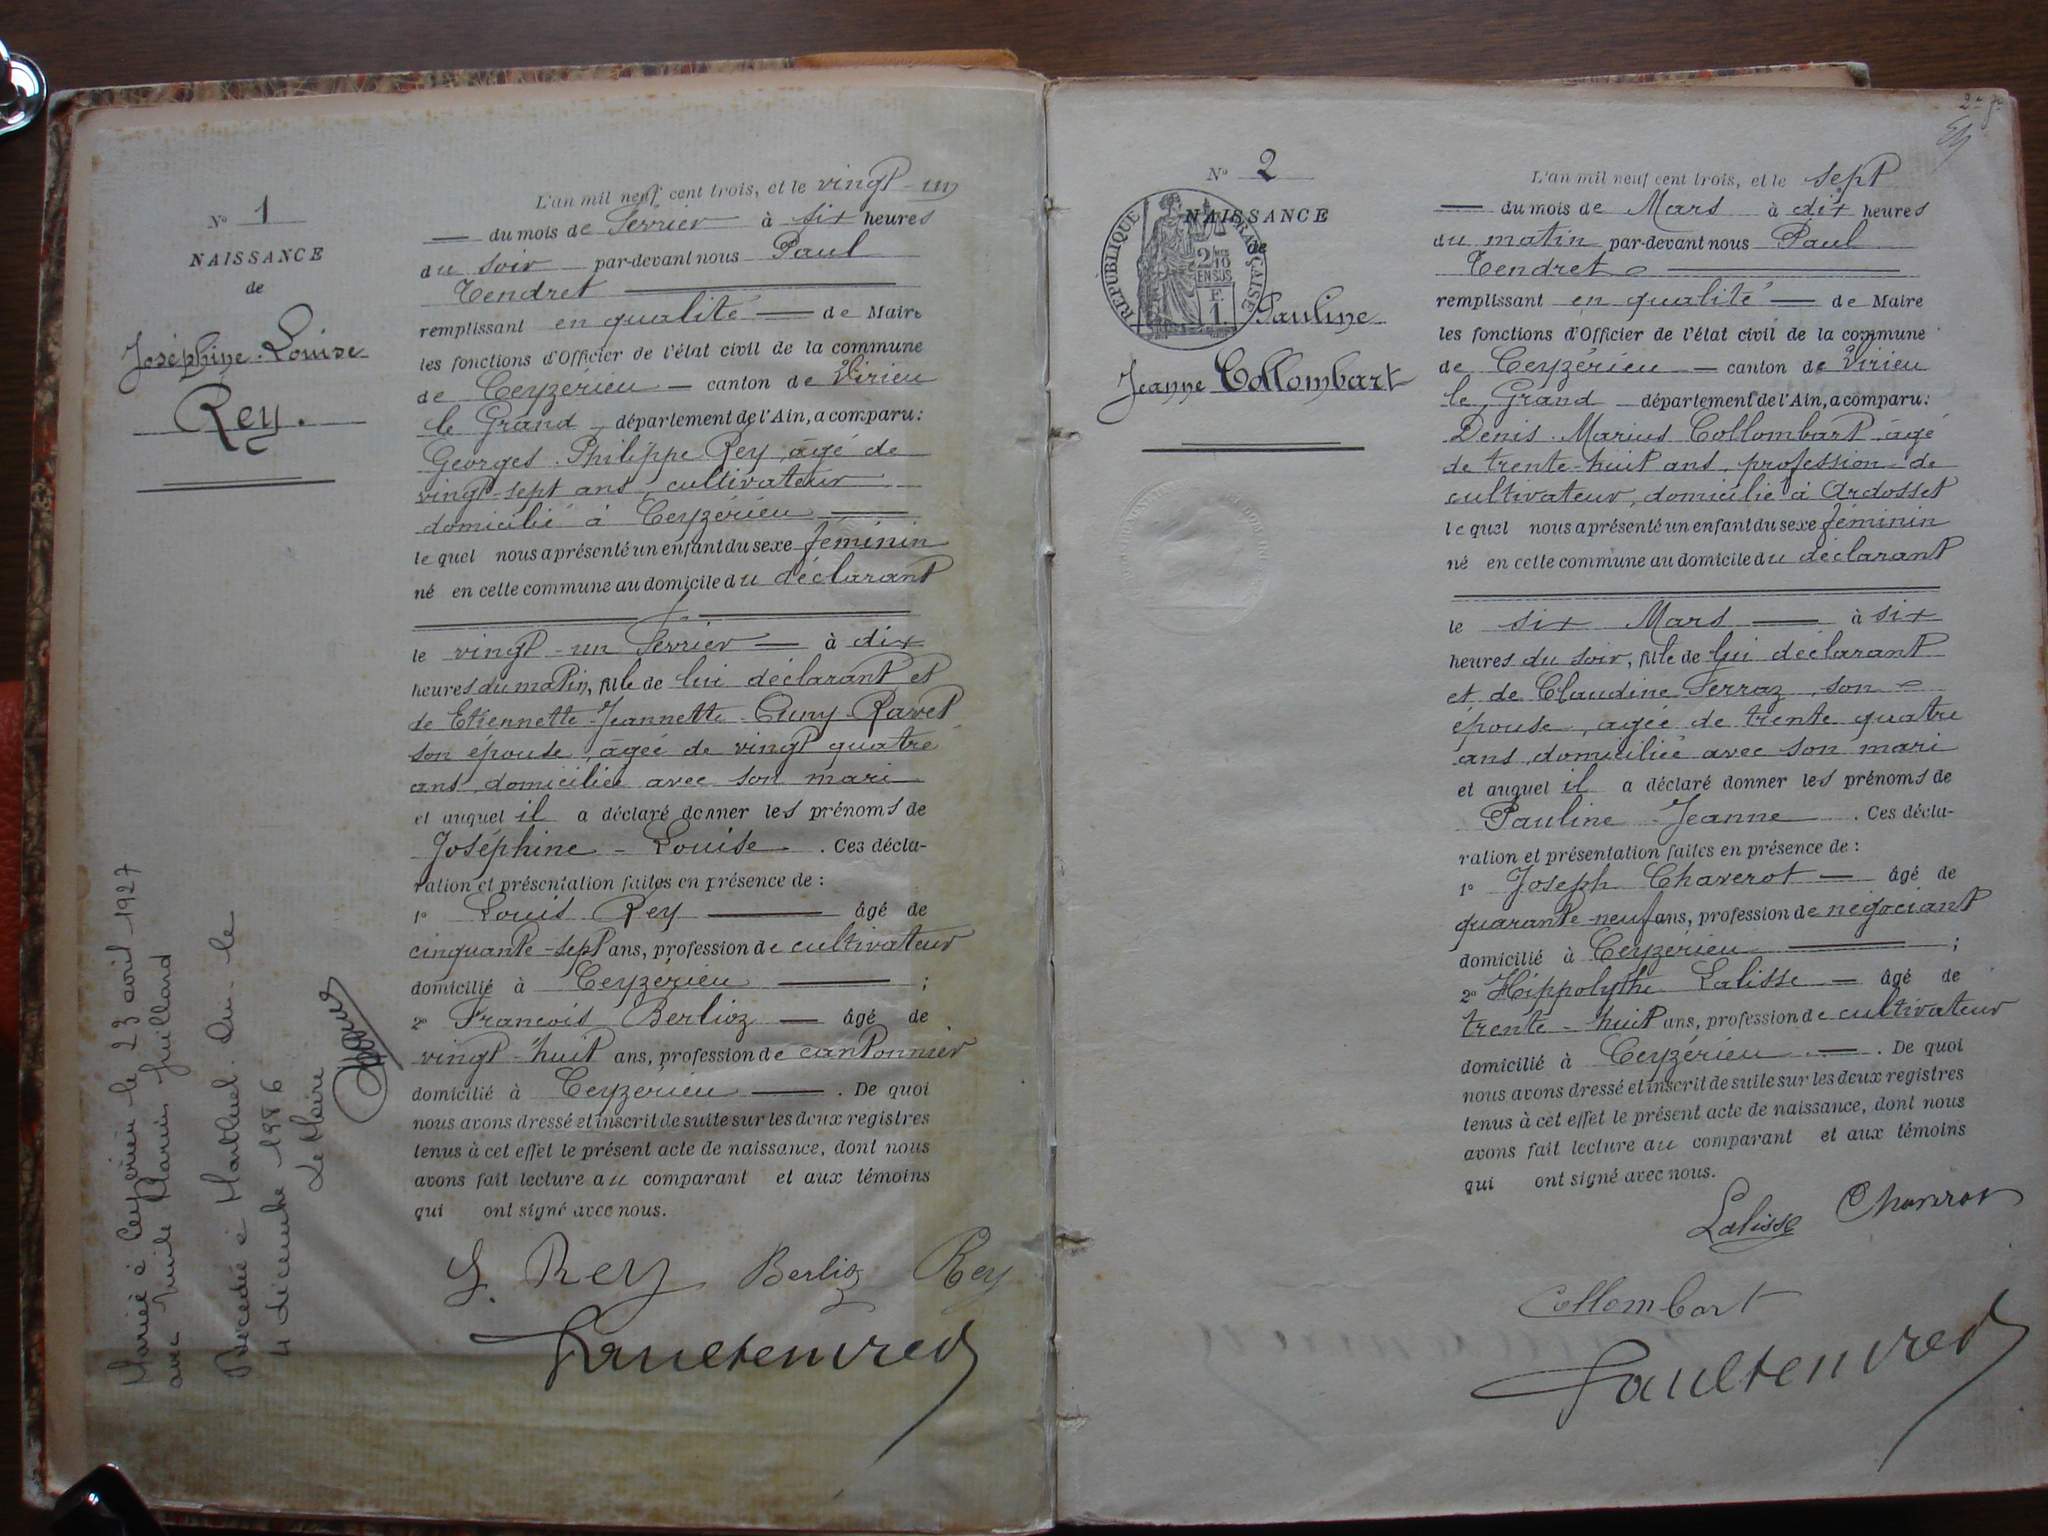 N° 1
NAISSANCE
de
Joséphine-Louise
Rey.
L'an mil neuf cent trois, et le vingt-un
du mois de Février à six heures
du soir par-devant nous Paul
Tendret
remplissant en qualité de Maire
les fonctions d'Officier de l'état civil de la commune
de Ceyzérieu canton de Virieu
le Grand département de l'Ain, a comparu:
Georges-Philippe Rey, âgé de
vingt-sept ans, cultivateur
domicilié à Ceyzérieu
lequel nous a présenté un enfant du sexe féminin
né en cette commune au domicile du déclarant
le vingt-un Février à dix
heures du matin, fille de lui déclarant et
de Etiennette-Jeannette Cuny-Ravet
son épouse, âgée de vingt quatre
ans, domiciliée avec son mari
et auquel il a déclaré donner les prénoms de
Joséphine-Louise. Ces décla-
ration et présentation faites en présence de :
1° Louis Rey âgé de
cinquante-sept ans, profession de cultivateur
domicilié à Ceyzérieu ;
2° François Berlioz âgé de
vingt-huit ans, profession de cantonnier
domicilié à Ceyzérieu. De quoi
nous avons dressé et inscrit de suite sur les deux registres
tenus à cet effet le présent acte de naissance, dont nous
avons fait lecture au comparant et aux témoins
qui ont signé avec nous.
Rey Berlioz Rey
Paul Tendret
Mariée à Ceyzérieu le 23 avril 1927
avec Emile Marius Guillard
Décédée à le
4 décembre 1986
Le Maire
N° 2
NAISSANCE
de
RÉPUBLIQUE FRANÇAISE
2/10
EN SUS
F.
1.
Pauline
Jeanne Collombart
L'an mil neuf cent trois, et le sept
du mois de Mars à dix heures
du matin par-devant nous Paul
Tendret
remplissant en qualité de Maire
les fonctions d'Officier de l'état civil de la commune
de Ceyzérieu canton de Virieu
le Grand département de l'Ain, a comparu:
Denis-Marius Collombart âgé
de trente-huit ans, profession de
cultivateur, domicilié à Ardosset
lequel nous a présenté un enfant du sexe féminin
né en cette commune au domicile du déclarant
le six Mars à six
heures du soir, fille de lui déclarant
et de Claudine Ferraz, son
épouse, agée de trente quatre
ans, domiciliée avec son mari
et auquel il a déclaré donner les prénoms de
Pauline-Jeanne. Ces décla-
ration et présentation faites en présence de :
1° Joseph Chaverot âgé de
quarante-neuf ans, profession de négociant
domicilié à Ceyzérieu ;
2° Hippolythe Lalisse âgé de
trente-huit ans, profession de cultivateur
domicilié à Ceyzérieu. De quoi
nous avons dressé et inscrit de suite sur les deux registres
tenus à cet effet le présent acte de naissance, dont nous
avons fait lecture au comparant et aux témoins
qui ont signé avec nous.
Lalisse Chaverot
Collombart
Paul Tendret